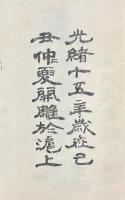 光緒十五年歲在己
丑仲夏開雕於滬上